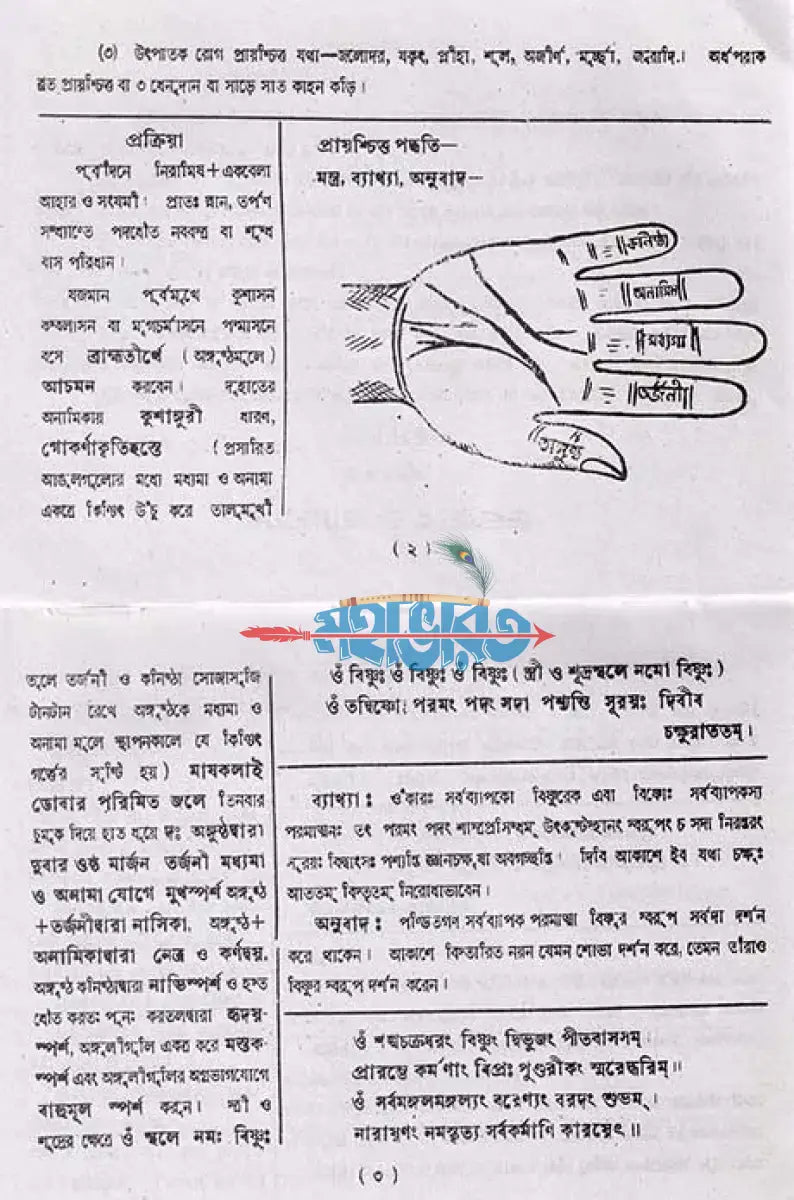 (৩) উৎপাতক রোগ প্রায়শ্চিত্ত যথা—জলোদর, যকৃৎ, প্লীহা, শূল, অজীর্ণ, মূর্চ্ছা, জ্বরাদি। অর্ধপরাক
ব্রত প্রায়শ্চিত্ত বা ৩ ধেনুদান বা সাড়ে সাত কাহন কড়ি।
প্রক্রিয়া
পূর্বদিনে নিরামিষ+একবেলা
আহার ও সংযমী। প্রাতঃ স্নান, তর্পণ
সন্ধ্যান্তে পদধৌত নববস্ত্র বা শুদ্ধ
বাস পরিধান।
যজমান পূর্বমুখে কুশাসন
কম্বলাসন বা মৃগচর্মাসনে পদ্মাসনে
বসে ব্রাহ্মতীর্থে (অঙ্গুষ্ঠমূলে)
আচমন করবেন। দুহাতের
অনামিকায় কুশাঙ্গুরী ধারণ,
গোকর্ণাকৃতিহস্তে (প্রসারিত
আঙুলগুলোর মধ্যে মধ্যমা ও অনামা
একত্রে কিঞ্চিৎ উঁচু করে তালুমুখী
প্রায়শ্চিত্ত পদ্ধতি—
মন্ত্র, ব্যাখ্যা, অনুবাদ—
কনিষ্ঠা
অনামিকা
মধ্যমা
তর্জনী
অঙ্গুষ্ঠ
(২)
মহাভারত
তুলে তর্জনী ও কনিষ্ঠা সোজাসুজি
টানটান রেখে অঙ্গুষ্ঠকে মধ্যমা ও
অনামা মূলে স্থাপনকালে যে কিঞ্চিৎ
গর্তের সৃষ্টি হয়) মাষকলাই
ডোবার পরিমিত জলে তিনবার
চুমুক দিয়ে হাত ধুয়ে দঃ অঙ্গুষ্ঠদ্বারা
দুবার ওষ্ঠ মার্জন তর্জনী মধ্যমা
ও অনামা যোগে মুখস্পর্শ অঙ্গুষ্ঠ
+তর্জনীদ্বারা নাসিকা, অঙ্গুষ্ঠ+
অনামিকাদ্বারা নেত্র ও কর্ণদ্বয়,
অঙ্গুষ্ঠ কনিষ্ঠাদ্বারা নাভিস্পর্শ ও হস্ত
ধৌত করতঃ পুনঃ করতলদ্বারা হৃদয়-
স্পর্শ, অঙ্গুলীগুলি একত্র করে মস্তক-
স্পর্শ এবং অঙ্গুলীগুলির অগ্রভাগযোগে
বাহুমূল স্পর্শ করুন। স্ত্রী ও
শূদ্রের ক্ষেত্রে ওঁ স্থলে নমঃ বিষ্ণুঃ
ওঁ বিষ্ণুঃ ওঁ বিষ্ণুঃ ওঁ বিষ্ণুঃ (স্ত্রী ও শূদ্রস্থলে নমো বিষ্ণুঃ)
ওঁ তদ্বিষ্ণোঃ পরমং পদং সদা পশ্যন্তি সূরয়ঃ দিবীব
চক্ষুরাততম্।
ব্যাখ্যা : ওঁকারঃ সর্বব্যাপকো বিষ্ণুরেক এবা বিষ্ণোঃ সর্বব্যাপকস্য
পরমাত্মনঃ তৎ পরমং পদং শাস্ত্রপ্রসিদ্ধম্ উৎকৃষ্টস্থানং স্বরূপং চ সদা নিরন্তরং
সূরয়ঃ বিদ্বাংসঃ পশ্যন্তি জ্ঞানচক্ষুষা অবগচ্ছন্তি। দিবি আকাশে ইব যথা চক্ষুঃ
আততম্ বিস্তৃতম্ নিরোধাভাবেন।
অনুবাদ : পণ্ডিতগণ সর্বব্যাপক পরমাত্মা বিষ্ণুর স্বরূপ সর্বদা দর্শন
করে থাকেন। আকাশে বিস্তারিত নয়ন যেমন শোভা দর্শন করে, তেমন তাঁরাও
বিষ্ণুর স্বরূপ দর্শন করেন।
ওঁ শঙ্খচক্রধরং বিষ্ণুং দ্বিভুজং পীতবাসসম্।
প্রারম্ভে কর্মণাং বিপ্রঃ পুণ্ডরীকং স্মরেদ্ধরিম্॥
ওঁ সর্বমঙ্গলমঙ্গল্যং বরেণ্যং বরদং শুভম্।
নারায়ণং নমস্কৃত্য সর্বকর্মাণি কারয়েৎ॥
(৩)